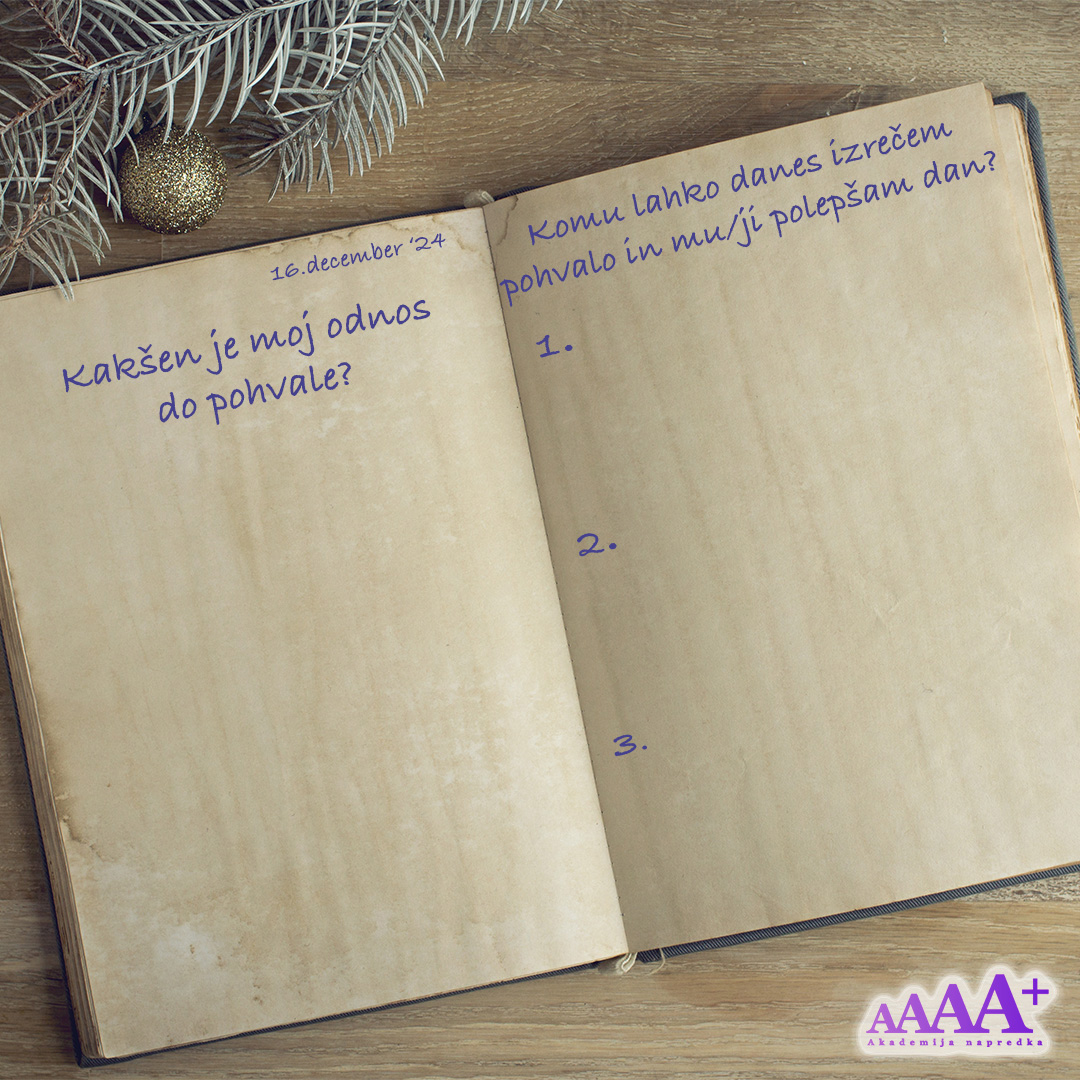 16.december '24
Kakšen je moj odnos
do pohvale?
Komu lahko danes izrečem
pohvalo in mu/ji polepšam dan?
1.
2.
3.
AAAA+
Akademija napredka